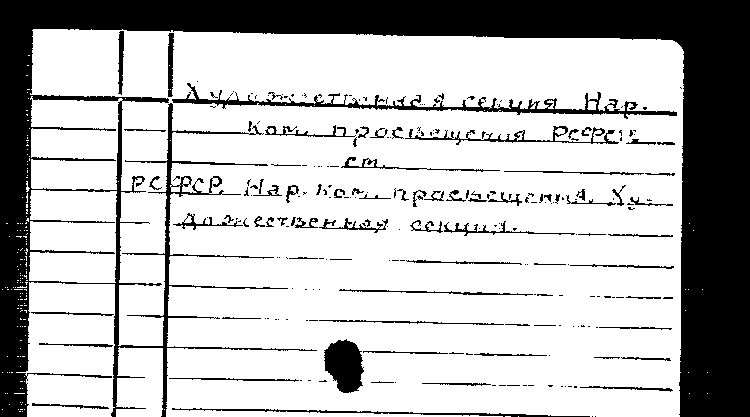 Художественная секция Нар.
Ком. просвещения РСФСР
см.
РСФСР. Нар. ком. просвещения. Ху-
дожественная секция.